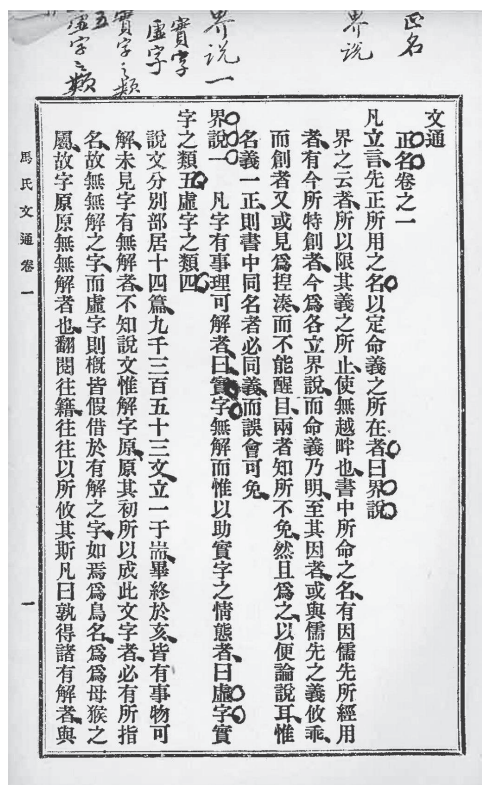 正名
界说
界说一
實字
虛字
實字之類
五
虛字之類
文通
正名卷之一
凡立言、先正所用之名以定命義之所在者曰界說
界之云者、所以限其義之所止、使無越畔也、書中所命之名、有因儒先所經用
者、有今所特創者、今爲各立界說、而命義乃明、至其因者、或與儒先之義攸乖、
而創者又或見爲揑湊、而不能醒目、兩者知所不免、然且爲之、以便論說耳、惟
名義一正、則書中同名者必同義、而誤會可免、
界說一 凡字有事理可解者、曰實字、無解而惟以助實字之情態者、曰虛字、實
字之類五、虛字之類四、
說文分別部居十四篇、九千三百五十三文、立一于耑、畢終於亥、皆有事物可
解、未見字有無解者、不知說文惟解字原、原其初所以成此文字者、必有所指
名、故無無解之字、而虛字則槪皆假借於有解之字、如焉爲鳥名、爲爲母猴之
屬、故字原原無無解者也、翻閱往籍、往往以所攸其斯凡曰孰得諸有解者、與
馬氏文通卷一
一